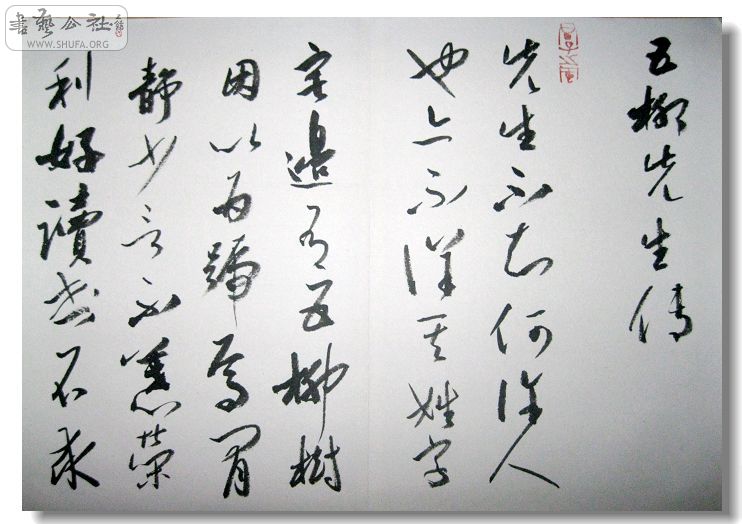 書藝公社
WWW.SHUFA.ORG
五柳先生傳
先生不知何許人
也亦不詳其姓字
宅邊有五柳樹
因以為號焉閒
靜少言不慕榮
利好讀書不求